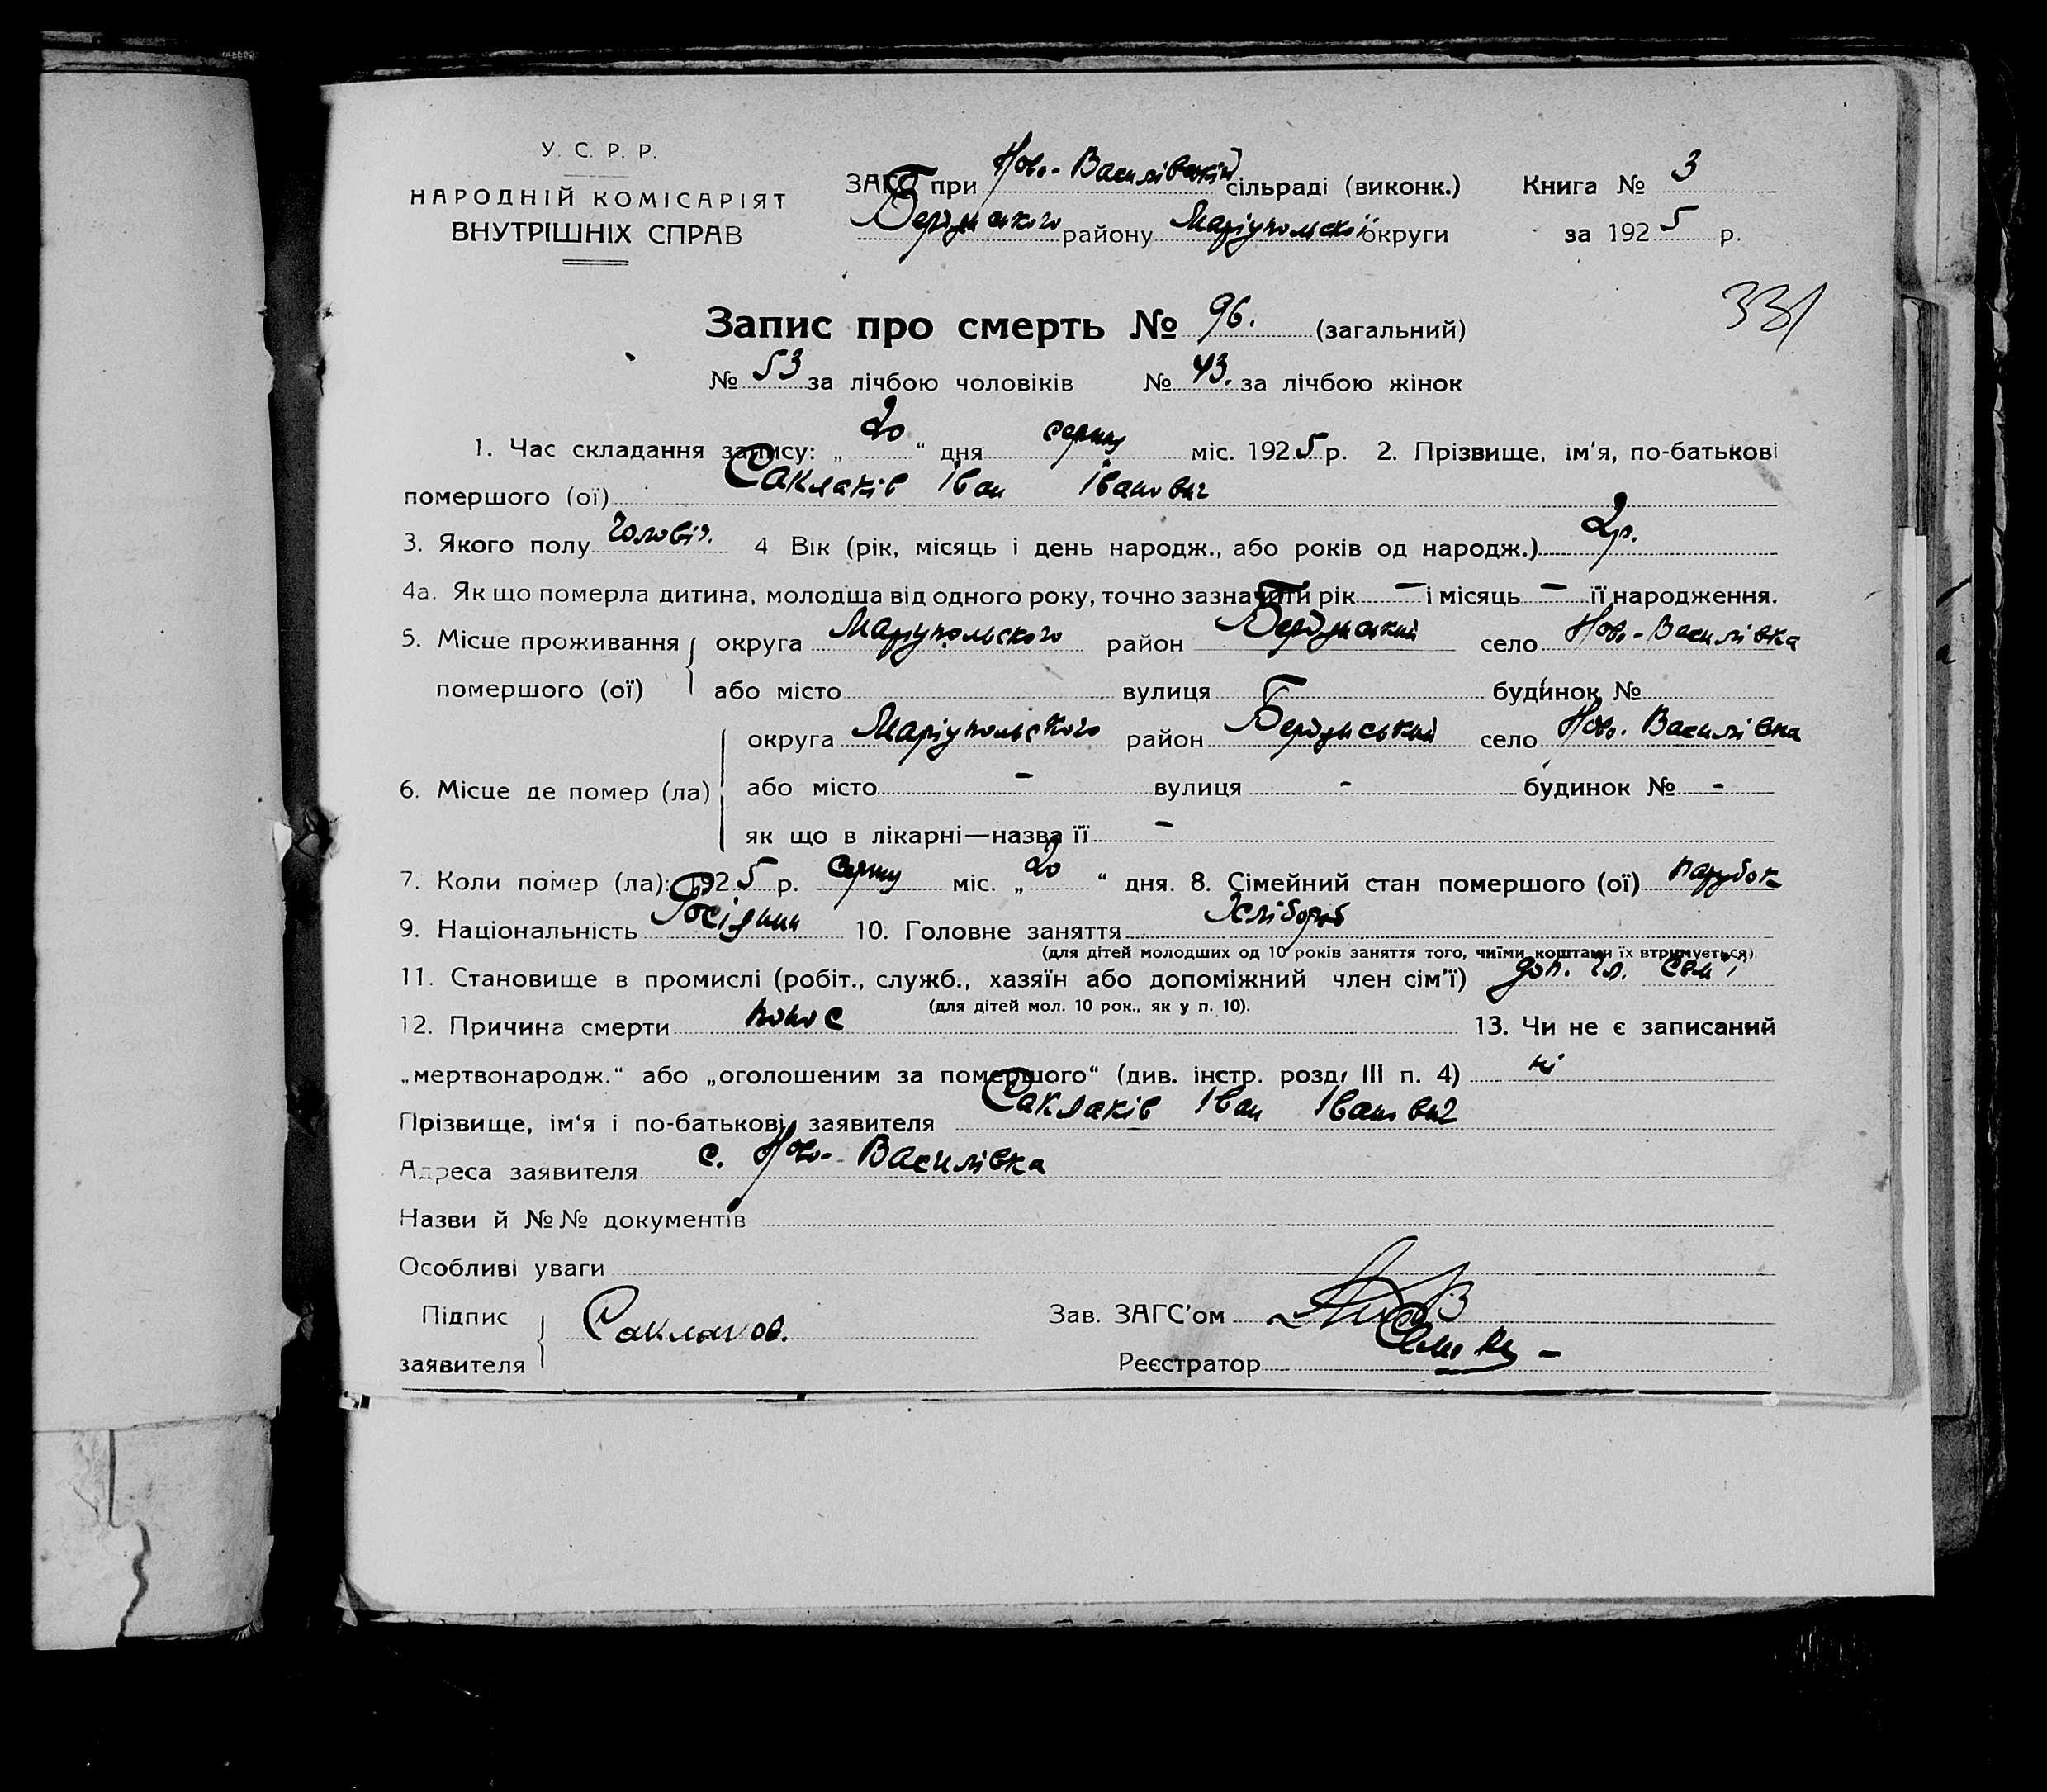 У. С. Р. Р.
НАРОДНІЙ КОМІСАРІЯТ
ВНУТРІШНІХ СПРАВ
ЗАГС при Ново-Василівській сільраді (виконк.)
Бердянського району Маріупольскої округи
Книга № 3
за 1925 р.
331
Запис про смерть № 96. (загальний)
№ 53 за лічбою чоловіків № 43. за лічбою жінок
1. Час складання запису: „20“ дня серпня міс. 1925 р. 2. Прізвище, ім'я, по-батькові
помершого (ої) Саклаків Іван Іванович
3. Якого полу чоловіч. 4 Вік (рік, місяць і день народж., або років од народж.) 2р.
4а. Як що померла дитина, молодша від одного року, точно зазначити рік — і місяць — її народження.
5. Місце проживання помершого (ої) округа Маріупольского район Бердянський село Ново-Василівка
або місто вулиця будинок №
6. Місце де помер (ла) округа Маріупольского район Бердянський село Ново-Василівка
або місто - вулиця - будинок № -
як що в лікарні—назва її -
7. Коли помер (ла): 1925 р. серпня міс. „20“ дня. 8. Сімейний стан помершого (ої) парубок
9. Національність Росіянин 10. Головне заняття Хлібороб
(для дітей молодших од 10 років заняття того, чиїми коштами їх втримується).
11. Становище в промислі (робіт., служб., хазяїн або допоміжний член сім'ї) доп. чл. сем'ї
(для дітей мол. 10 рок., як у п. 10).
12. Причина смерти понос 13. Чи не є записаний
„мертвонародж.“ або „оголошеним за помершого“ (див. інстр. розд. III п. 4) ні
Прізвище, ім'я і по-батькові заявителя Саклаків Іван Іванович
Адреса заявителя с. Ново-Василівка
Назви й №№ документів
Особливі уваги
Підпис заявителя Саклаков.
Зав. ЗАГС'ом
Реєстратор